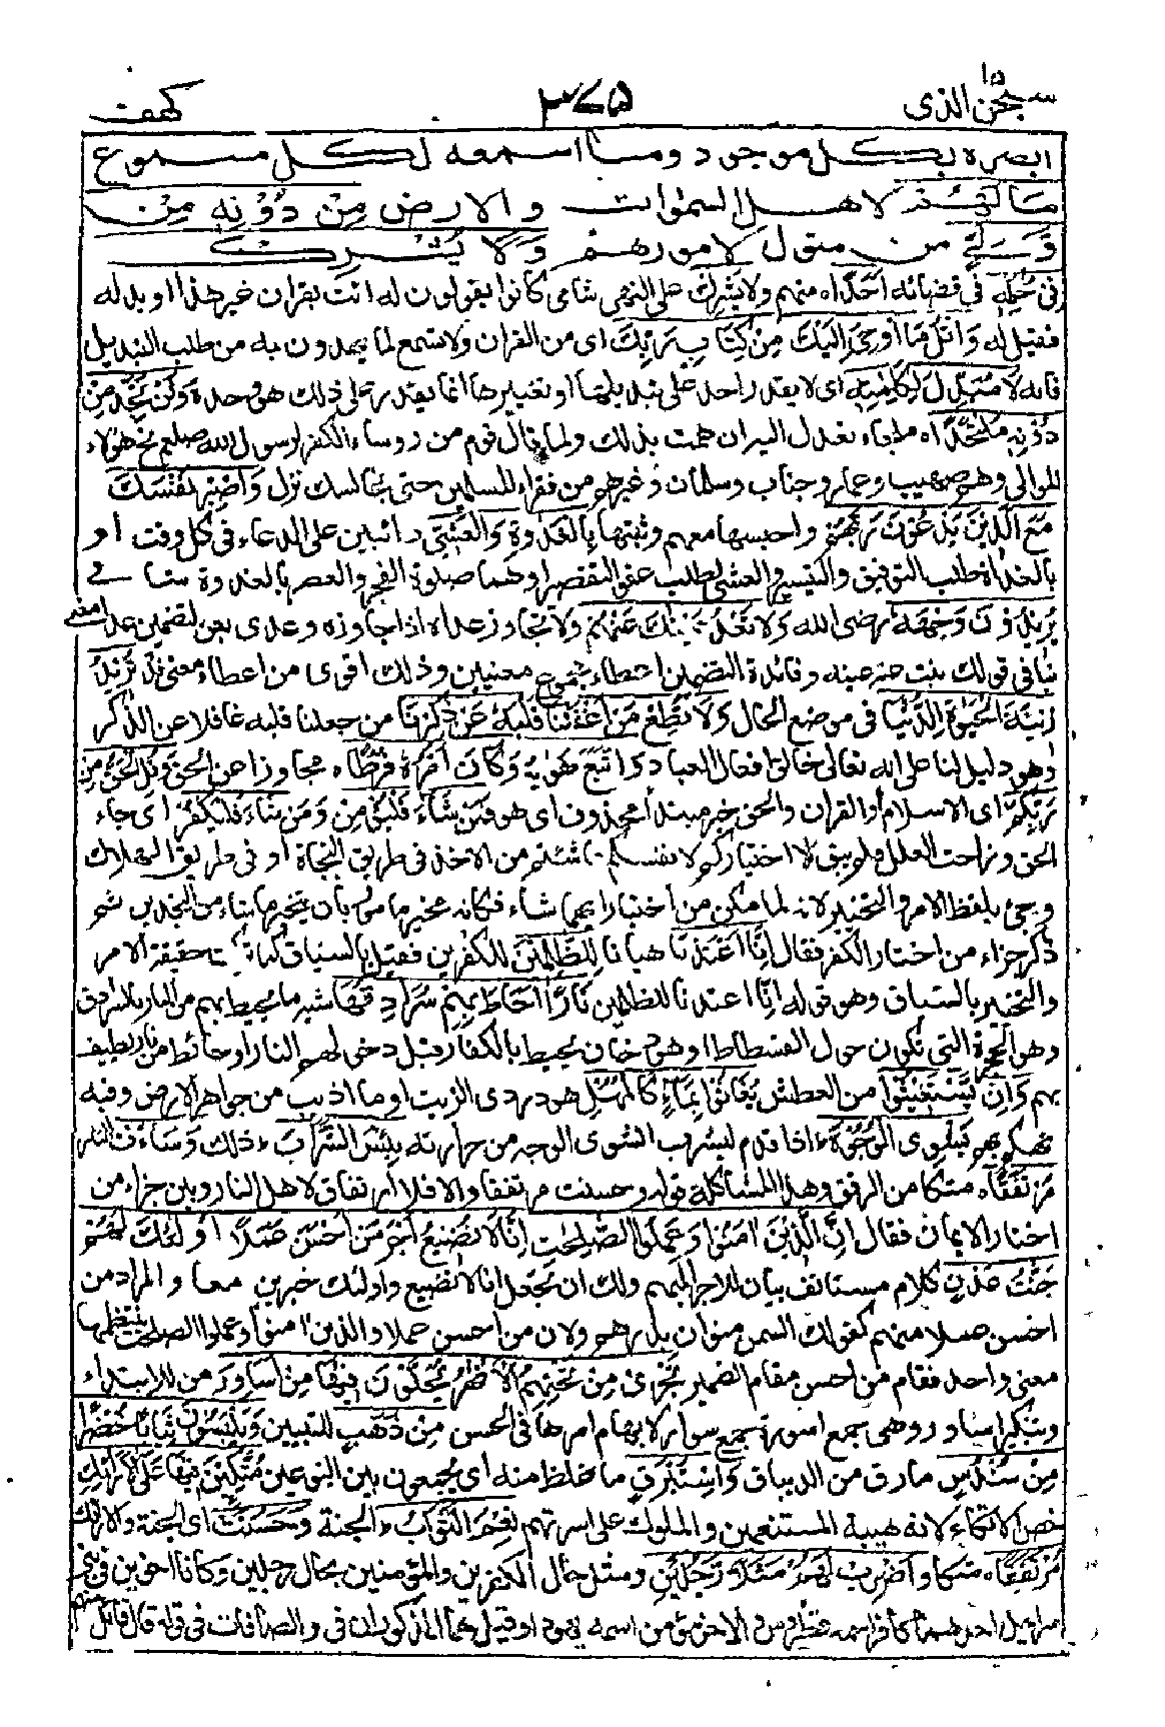 سبحٰن الذی ١٥
٣٧٥
کهف
ابصره بكل موجود وما اسمعه لكل مسموع
مَا لَهُمْ لاهل السمٰوات والارض مِنْ دُوْنِهٖ مِنْ
وَّلِيٍّ من متول لامورهم وَلَا يُشْرِكُ
فِيْ حُكْمِهٖٓ في قضائه اَحَدًاه منهم ولا تشرك على النهي شامي كانوا يقولون له ائت بقران غير هذا او بدله
فقيل له وَاتْلُ مَآ اُوْحِيَ اِلَيْكَ مِنْ كِتَابِ رَبِّكَ اى من القران ولا تسمع لما يهذون به من طلب التبديل
فانه لَا مُبَدِّلَ لِكَلِمٰتِهٖ اى لا يقدر احد على تبديلها او تغييرها انما يقدر على ذلك هو وحده وَلَنْ تَجِدَ مِنْ
دُوْنِهٖ مُلْتَحَدًاه ملجاء تعدل اليه ان هممت بذلك ولما قال قوم من رؤساء الكفر لرسول الله صلعم نح هؤلاء
الموالى وهم صهيب وعمار وخباب وسلمان وغيرهم من فقراء المسلمين حتى نجالسك نزل وَاصْبِرْ نَفْسَكَ
مَعَ الَّذِيْنَ يَدْعُوْنَ رَبَّهُمْ واحبسها معهم وثبتها بِالْغَدٰوةِ وَالْعَشِيِّ دائبين على الدعاء في كل وقت او
بالغداة لطلب التوفيق والتيسير والعشي لطلب عفو التقصير او هما صلوة الفجر والعصر بالغدوة شامي
يُرِيْدُوْنَ وَجْهَهٗ رضى الله وَلَا تَعْدُ عَيْنٰكَ عَنْهُمْ ولا تجاوز عداه اذا جاوزه وعدى بعن لتضمين عدا معنى
نبا في قولك نبت عنه عينه وفائدة التضمين اعطاء مجموع معنيين وذلك اقوى من اعطاء معنى فذ تُرِيْدُ
زِيْنَةَ الْحَيٰوةِ الدُّنْيَا في موضع الحال وَلَا تُطِعْ مَنْ اَغْفَلْنَا قَلْبَهٗ عَنْ ذِكْرِنَا من جعلنا قلبه غافلا عن الذكر
وهو دليل لنا على انه تعالى خالق افعال العباد وَاتَّبَعَ هَوٰىهُ وَكَانَ اَمْرُهٗ فُرُطًاه مجاوزا عن الحق وَقُلِ الْحَقُّ مِنْ
رَّبِّكُمْ اى الاسلام او القران والحق خبر مبتدأ محذوف اى هو فَمَنْ شَآءَ فَلْيُؤْمِنْ وَمَنْ شَآءَ فَلْيَكْفُرْ اى جاء
الحق وزاحت العلل فلم يبق الا اختياركم لانفسكم ما شئتم من الاخذ في طريق النجاة او في طريق الهلاك
وجئ بلفظ الامر والتخيير لانه لما مكن من اختيار ايهما شاء فكانه مخير مامور بان يتخير ما شاء من النجدين ثم
ذكر جزاء من اختار الكفر فقال اِنَّآ اَعْتَدْنَا هيأنا لِلظّٰلِمِيْنَ للكفرين فقيد بالسياق حقيقة الامر
والتخيير بالسياق وهو قوله انا اعتدنا للظلمين نَارًا اَحَاطَ بِهِمْ سُرَادِقُهَا شبه ما يحيط بهم من النار بالسرادق
وهو الحجرة التي تكون حول الفسطاط او هو دخان يحيط بالكفار قبل دخولهم النار او حائط من نار يطيف
بهم وَاِنْ يَّسْتَغِيْثُوْا من العطش يُغَاثُوْا بِمَآءٍ كَالْمُهْلِ هو دردى الزيت او ما اذيب من جواهر الارض وفيه
تهكم بهم يَشْوِي الْوُجُوْهَ ط اذا قدم ليشرب انشوى الوجه من حرارته بِئْسَ الشَّرَابُ ط ذلك وَسَآءَتْ النار
مُرْتَفَقًاه متكأ من الرفق وهذا لمشاكلة قوله وحسنت مرتفقا والا فلا ارتفاق لاهل النار وبين جزاء من
اختار الايمان فقال اِنَّ الَّذِيْنَ اٰمَنُوْا وَعَمِلُوا الصّٰلِحٰتِ اِنَّا لَا نُضِيْعُ اَجْرَ مَنْ اَحْسَنَ عَمَلًا اُولٰٓئِكَ لَهُمْ
جَنّٰتُ عَدْنٍ كلام مستانف بيان للاجر المبهم ولك ان تجعل انا لا نضيع واولئك خبرين معا والمراد من
احسن عملا منهم كقولك السمن منوان بدرهم ولان من احسن عملا والذين امنوا وعملوا الصلحت ينتظمهما
معنى واحد فقام من احسن مقام الضمير تَجْرِيْ مِنْ تَحْتِهِمُ الْاَنْهٰرُ يُحَلَّوْنَ فِيْهَا مِنْ اَسَاوِرَ من للابتداء
وتنكير اساور وهى جمع اسورة جمع سوار لابهام امرها في الحسن مِنْ ذَهَبٍ للتبيين وَّيَلْبَسُوْنَ ثِيَابًا خُضْرًا
مِّنْ سُنْدُسٍ مارق من الديباق وَّاِسْتَبْرَقٍ ما غلظ منه اى يجمعون بين النوعين مُّتَّكِئِيْنَ فِيْهَا عَلَى الْاَرَآئِكِ
خص الاتكاء لانه هيئة المتنعمين والملوك على اسرتهم نِعْمَ الثَّوَابُ ط الجنة وَحَسُنَتْ اى الجنة والارائك
مُرْتَفَقًاه متكأ وَاضْرِبْ لَهُمْ مَّثَلًا رَّجُلَيْنِ ومثل حال الكفرين والمؤمنين بحال رجلين وكانا اخوين في بنى
اسراءيل احدهما كافر اسمه قطروس والاخر مؤمن اسمه يهودا وقيل هما المذكوران في والصافات في قوله قال قائل منهم